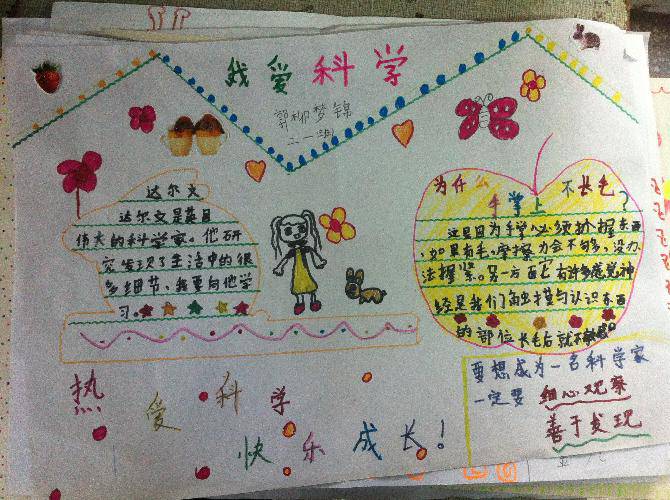 我爱科学
郭柳梦锦
二一班
达尔文
达尔文是英国
伟大的科学家。他研
究发现了生活中的很
多细节,我要向他学
习。
为什么
手掌上
不长毛
?
这是因为手掌必须抓握东西
,如果有毛,摩擦力会不够,没办
法握紧。另一方面它有许多感觉神
经是我们触摸与认识东西
的部位长毛后就不
要想成为一名科学家
一定要 细心观察
善于发现
热爱科学
快乐成长!